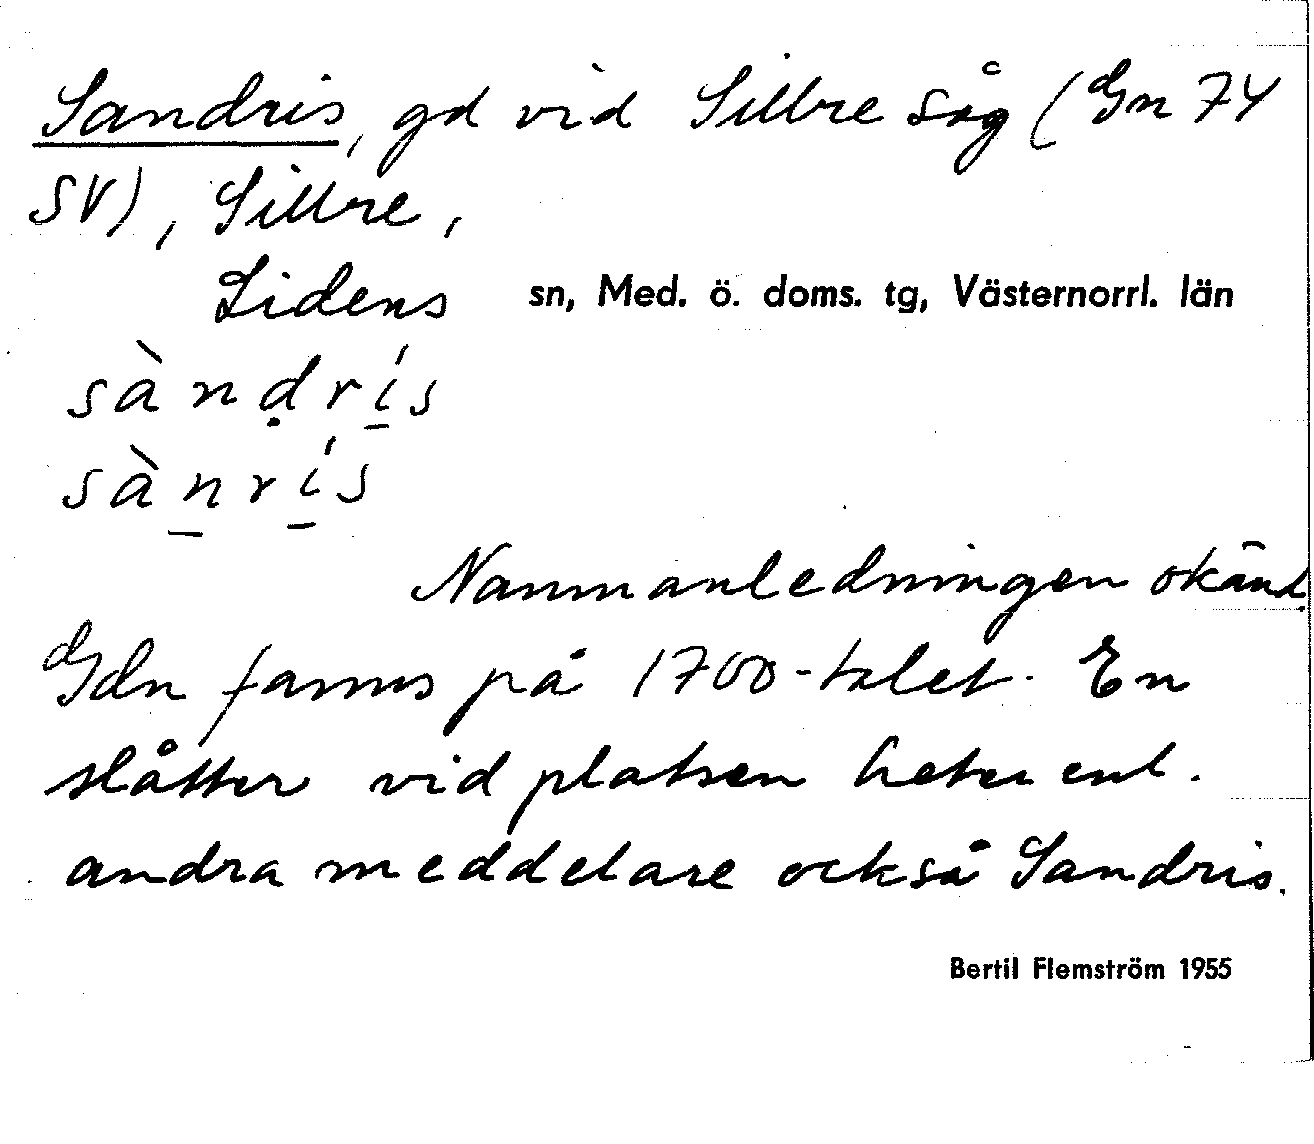 Sandris, gd vid Sillre såg (Gn 74
SV), Sillre,
Lidens sn, Med. ö. doms. tg, Västernorrl. län
sàndṛí̲s
sàn̲rí̲s
Namnanledningen okänd.
Gdn fanns på 1700-talet. En
slåtter vid platsen heter enl.
andra meddelare också Sandris.
Bertil Flemström 1955